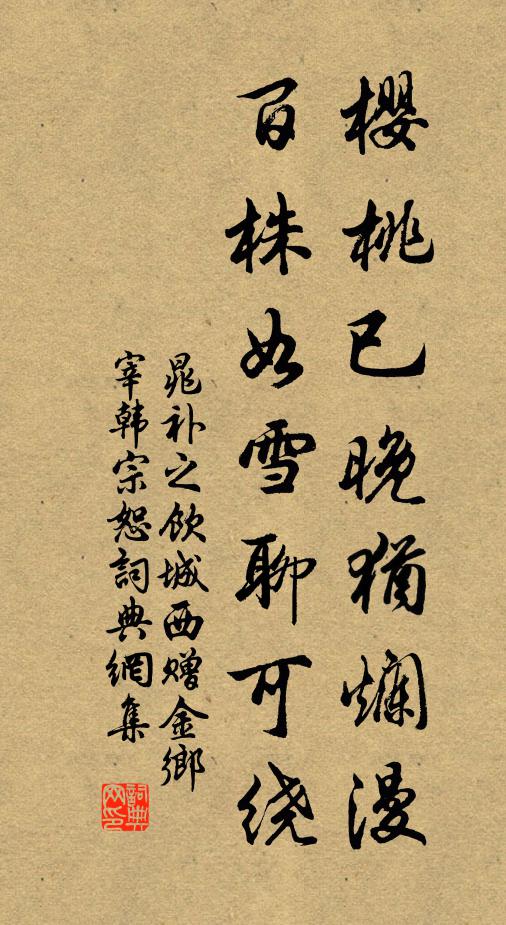 櫻桃已晚猶爛漫
百株如雪聊可绕
晁补之飲城西赠金鄉
宰韩宗恕詞典網集
詞典
网印